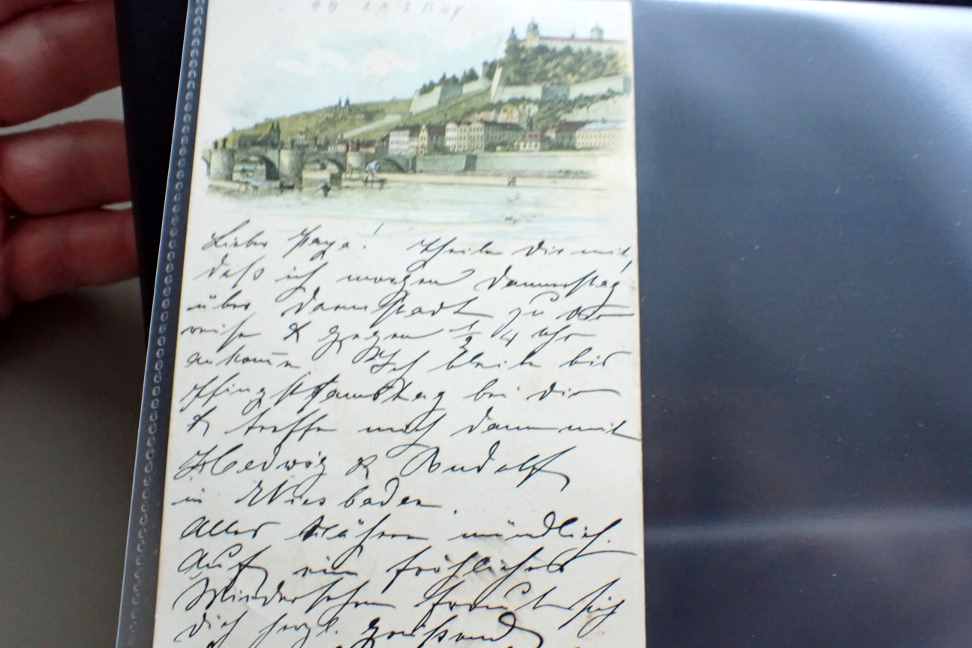 Lieber Papa! theile Dir mit,
daß ich morgen Donnerstag
über Darmstadt zu Dir
reise & gegen ½ 4 Uhr
ankomme Ich bleibe bis
Pfingstsamstag bei Dir
& treffe mich dann mit
Hedwig & Rudolf
in Wiesbaden.
Alles Nähere mündlich.
Auf ein fröhliches
Wiedersehen freut sich
Dich herzl. grüßend